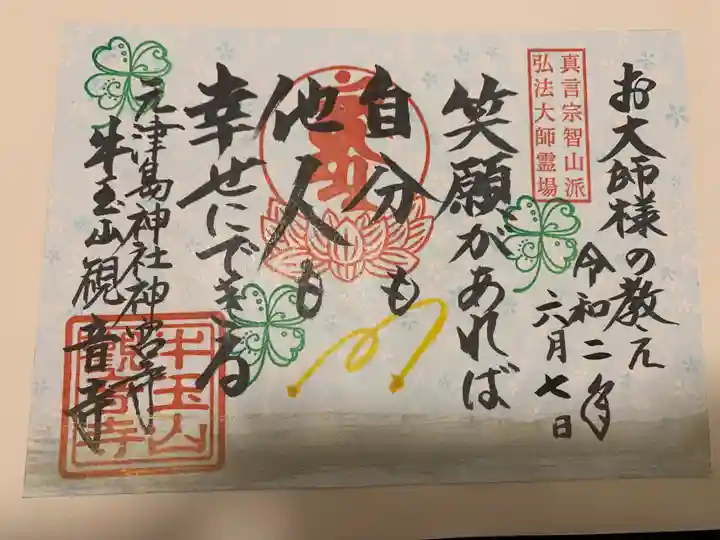 お大師様の教え
令和二年
六月七日
真言宗智山派
弘法大師霊場
笑願があれば
自分も
他人も
幸せにできる
元津島神社神宮寺
牛玉山観音寺
牛玉山
観音寺